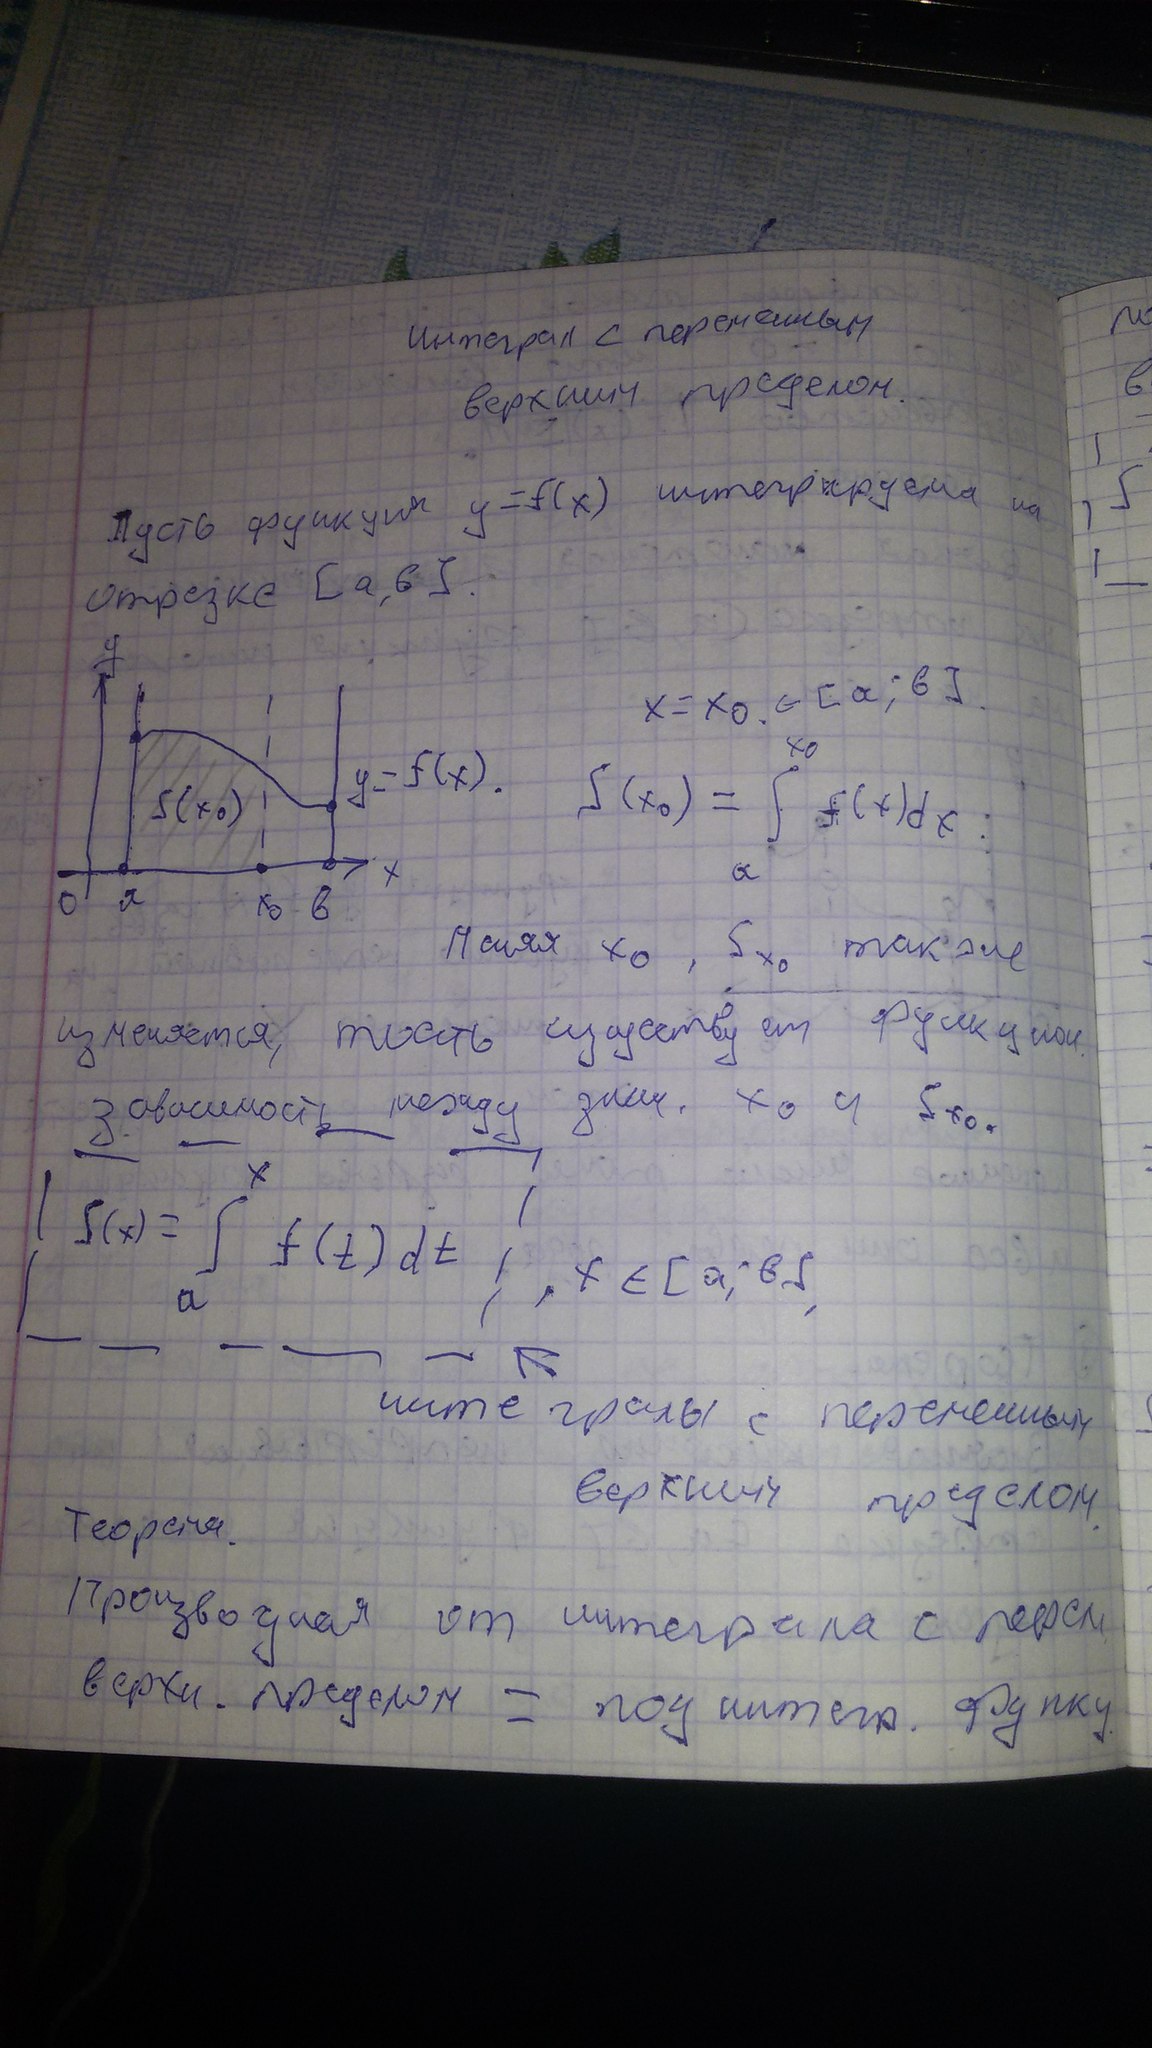 Интеграл с переменным
верхним пределом.
Пусть функция y=f(x) интегрируема на
отрезке [a,b].
y
x=x₀ ∈ [a;b].
S(x₀) y=f(x).
S(x₀) = ∫ₐˣ⁰ f(x)dx :
0 a x₀ b x
Меняя x₀, Sx₀ также
изменяется, тость существует функцион.
зависимость между знач. x₀ и Sx₀.
S(x) = ∫ₐˣ f(t)dt , x ∈ [a;b],
интегралы с переменным
верхним пределом.
Теорема.
Производная от интеграла с перем.
верхн. пределом = подинтегр. функц.